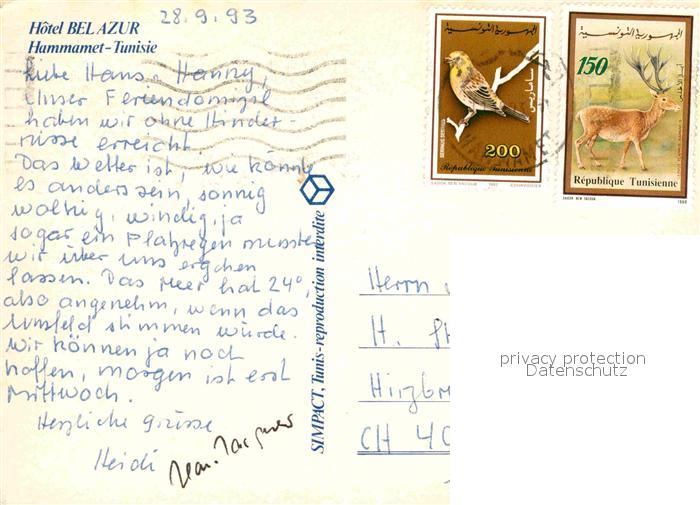 28.9.93
Hôtel BEL AZUR
Hammamet-Tunisie
Liebe Hans u. Hanny,
Unser Feriendomizil
haben wir ohne Hinder-
nisse erreicht.
Das Wetter ist, wie könnte
es anders sein, sonnig
wolkig, windig, ja
sogar ein Platzregen mussten
wir über uns ergehen
lassen. Das Meer hat 24°,
also angenehm, wenn das
Umfeld stimmen würde.
Wir können ja noch
hoffen, morgen ist erst
Mittwoch.
Herzliche Grüsse
Heidi Jean-Jacques
SIMPACT, Tunis-reproduction interdite
الجمهورية التونسية
200
République Tunisienne
الجمهورية التونسية
150
République Tunisienne
Herrn
H. St
Hirzbr
CH 40
privacy protection
Datenschutz